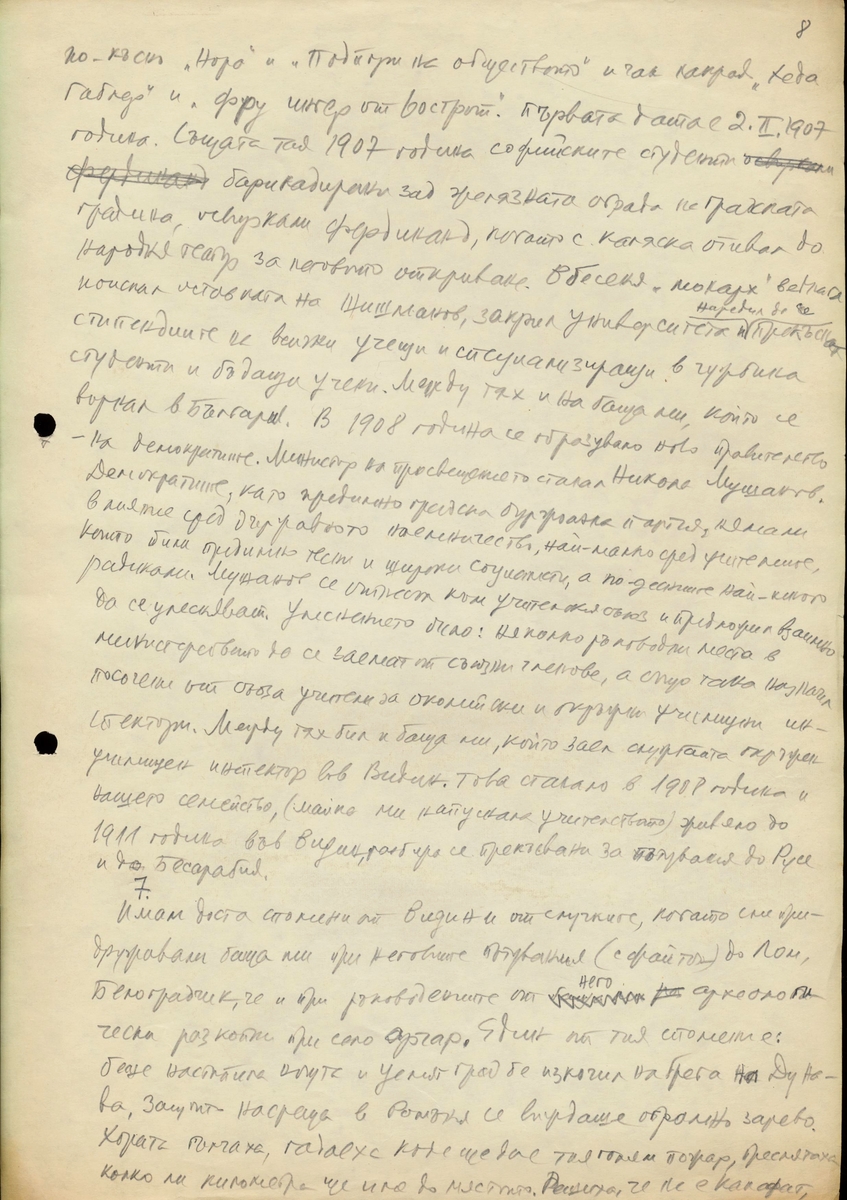 8
по-късно „Нора" и „Подпори на обществото" и чак накрая „Хеда
Габлер" и „Фру Ингер от Вострот". Първата дата е 2.II.1907
година. Същата тая 1907 година софийските студенти освиркали
Фердинанд барикадирани зад желязната ограда на градската
градина, освиркали Фердинанд, когато с каляска отивал до
Народния театър за неговото откриване. Вбесеният „монарх" веднага
поискал оставката на Шишманов, закрил университета и наредил да се прекъснат
стипендиите на всички учещи и специализиращи в чужбина
студенти и бъдещи учени. Между тях и на баща ми, който се
върнал в България. В 1908 година се образувало ново правителство
– на демократите. Министър на просвещението станал Никола Мушанов.
Демократите, като предимно градска буржоазна партия, нямали
влияние сред държавното чиновничество, най-малко сред учителите,
които били предимно тесни и широки социалисти, а по-десните най-много
радикали. Мушанов се отнесъл към учителския съюз и предложил взаимно
да се улесняват. Улеснението било: няколко ръководни места в
министерството да се заемат от съюзни членове, а също така назначил
посочени от съюза учители за околийски и окръжни училищни ин-
спектори. Между тях бил и баща ми, който заел службата окръжен
училищен инспектор във Видин. Това станало в 1908 година и
нашето семейство, (майка ми напуснала учителството) живяло до
1911 година във Видин, разбира се прекъсвани за пътувания до Русе
и до Бесарабия.
7.
Имам доста спомени от Видин и от случките, когато сме при-
дружавали баща ми при неговите пътувания (с файтон) до Лом,
Белоградчик, че и при ръководените от него археологи-
чески разкопки при село Арчар. Един от тия спомени е:
беше настъпила нощта и целият град бе изкочил на брега на Дуна-
ва, защото насреща в Румъния се виждаше огромно зарево.
Хората гълчаха, гадаеха къде ще да е тоя голям пожар, пресмятаха
колко ли километра ще има до мястото. Решиха, че не е Калафат,